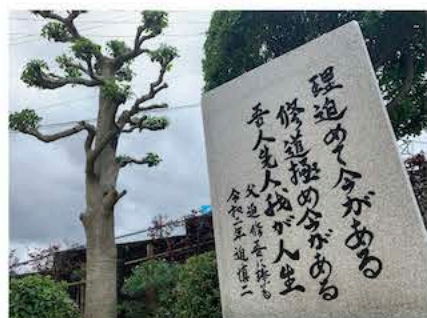 理迫めて今がある
修道極め今がある
吾人先人我が人生
父迫修吾に捧ぐ
令和二年 迫慎二